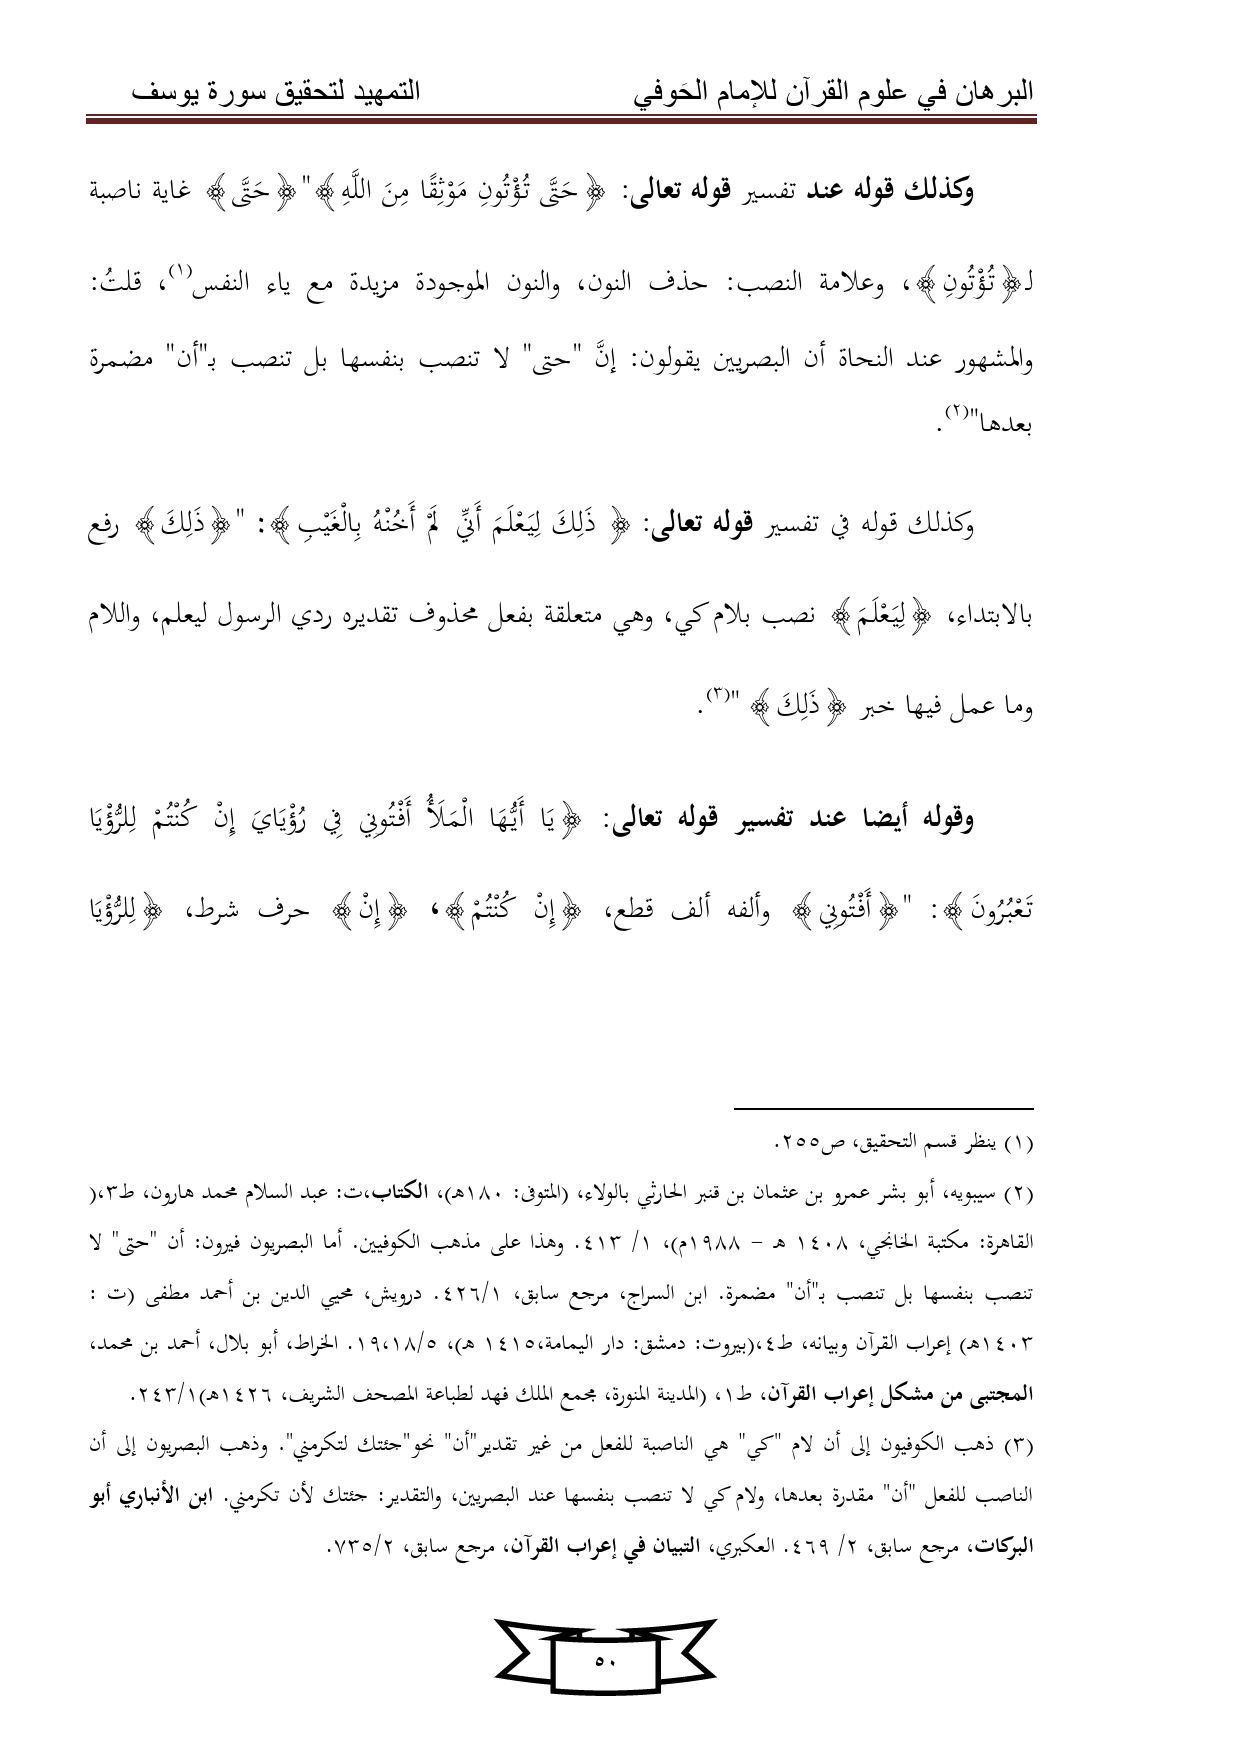 البرهان في علوم القرآن للإمام الحَوفي التمهيد لتحقيق سورة يوسف
وكذلك قوله عند تفسير قوله تعالى: ﴿حَتَّى تُؤْتُونِ مَوْثِقًا مِنَ اللَّهِ﴾"﴿حَتَّى﴾ غاية ناصبة
لـ﴿تُؤْتُونِ﴾، وعلامة النصب: حذف النون، والنون الموجودة مزيدة مع ياء النفس(١)، قلتُ:
والمشهور عند النحاة أن البصريين يقولون: إنَّ "حتى" لا تنصب بنفسها بل تنصب بـ"أن" مضمرة
بعدها"(٢).
وكذلك قوله في تفسير قوله تعالى: ﴿ ذَلِكَ لِيَعْلَمَ أَنِّي لَمْ أَخُنْهُ بِالْغَيْبِ﴾: "﴿ذَلِكَ﴾ رفع
بالابتداء، ﴿لِيَعْلَمَ﴾ نصب بلام كي، وهي متعلقة بفعل محذوف تقديره ردي الرسول ليعلم، واللام
وما عمل فيها خبر ﴿ذَلِكَ﴾ "(٣).
وقوله أيضا عند تفسير قوله تعالى: ﴿يَا أَيُّهَا الْمَلَأُ أَفْتُونِي فِي رُؤْيَايَ إِنْ كُنْتُمْ لِلرُّؤْيَا
تَعْبُرُونَ﴾: "﴿أَفْتُونِي﴾ وألفه ألف قطع، ﴿إِنْ كُنْتُمْ﴾، ﴿إِنْ﴾ حرف شرط، ﴿لِلرُّؤْيَا
(١) ينظر قسم التحقيق، ص٢٥٥.
(٢) سيبويه، أبو بشر عمرو بن عثمان بن قنبر الحارثي بالولاء، (المتوفى: ١٨٠هـ)، الكتاب،ت: عبد السلام محمد هارون، ط٣،(
القاهرة: مكتبة الخانجي، ١٤٠٨ هـ – ١٩٨٨م)، ١/ ٤١٣. وهذا على مذهب الكوفيين. أما البصريون فيرون: أن "حتى" لا
تنصب بنفسها بل تنصب بـ"أن" مضمرة. ابن السراج، مرجع سابق، ٤٢٦/١. درويش، محيي الدين بن أحمد مطفى (ت :
١٤٠٣هـ) إعراب القرآن وبيانه، ط٤،(بيروت: دمشق: دار اليمامة،١٤١٥ هـ)، ١٩،١٨/٥. الخراط، أبو بلال، أحمد بن محمد،
المجتبى من مشكل إعراب القرآن، ط١، (المدينة المنورة، مجمع الملك فهد لطباعة المصحف الشريف، ١٤٢٦هـ)٢٤٣/١.
(٣) ذهب الكوفيون إلى أن لام "كي" هي الناصبة للفعل من غير تقدير"أن" نحو"جئتك لتكرمني". وذهب البصريون إلى أن
الناصب للفعل "أن" مقدرة بعدها، ولام كي لا تنصب بنفسها عند البصريين، والتقدير: جئتك لأن تكرمني. ابن الأنباري أبو
البركات، مرجع سابق، ٢/ ٤٦٩. العكبري، التبيان في إعراب القرآن، مرجع سابق، ٧٣٥/٢.
٥٠